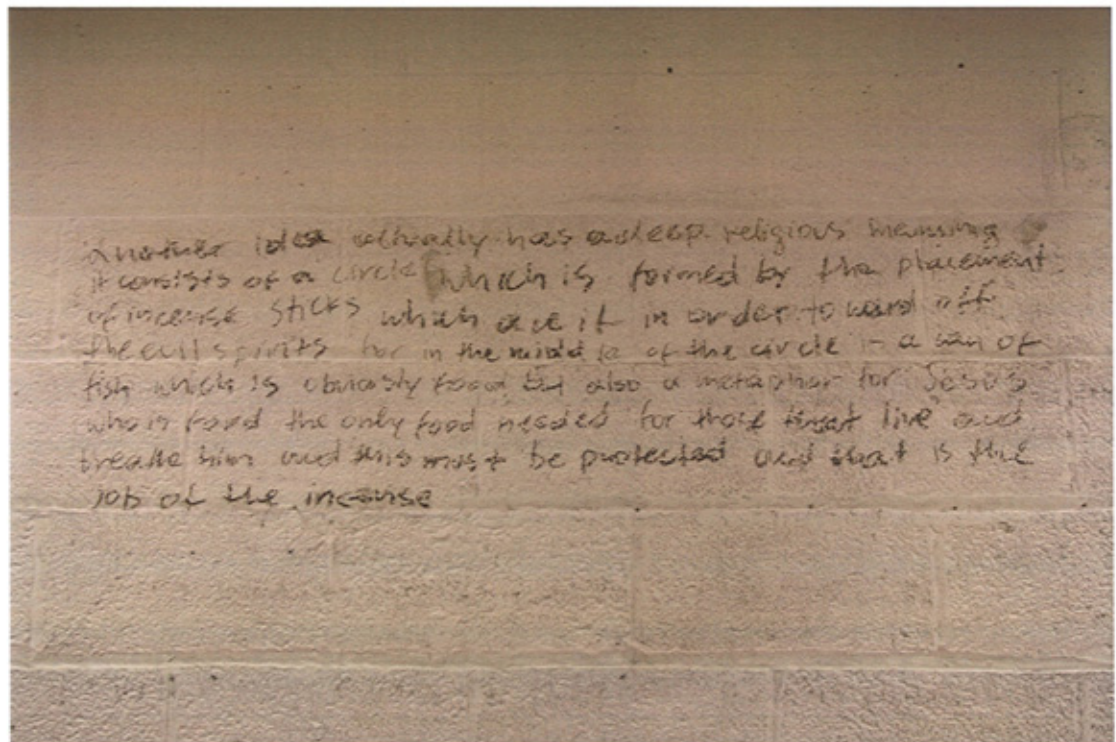 another idea actually has a deep religious meaning
it consists of a circle which is formed by the placement
of incense sticks which are in order to ward off
the evil spirits for in the middle of the circle is a can of
fish which is obviously food but also a metaphor for Jesus
who is the only food needed for those that live and
breathe him and this must be protected and that is the
job of the incense